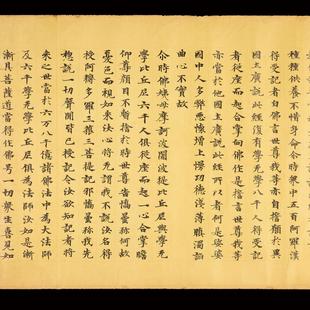 種種供養不惜身命尒時衆中五百阿羅漢
得受記者白佛言世尊我等亦自誓願於異
國土廣說此經復有學无學八千人得受記
者從座而起合掌向佛作是誓言世尊我等
亦當於他國土廣說此經所以者何是娑婆
國中人多弊惡懷增上慢功德淺薄瞋濁諂
曲心不實故
尒時佛姨母摩訶波闍波提比丘尼與學无
學比丘尼六千人俱從座而起一心合掌瞻
仰尊顏目不暫捨於時世尊告憍曇彌何故
憂色而視如来汝心將无謂我不說汝名
授阿耨多羅三藐三菩提記耶憍曇彌我先
總說一切聲聞皆已授記今汝欲知記者將
来之世當於六万八千億諸佛法中為大法師
及六千學无學比丘尼俱為法師汝如是漸
漸具菩薩道當得作佛号一切衆生喜見如